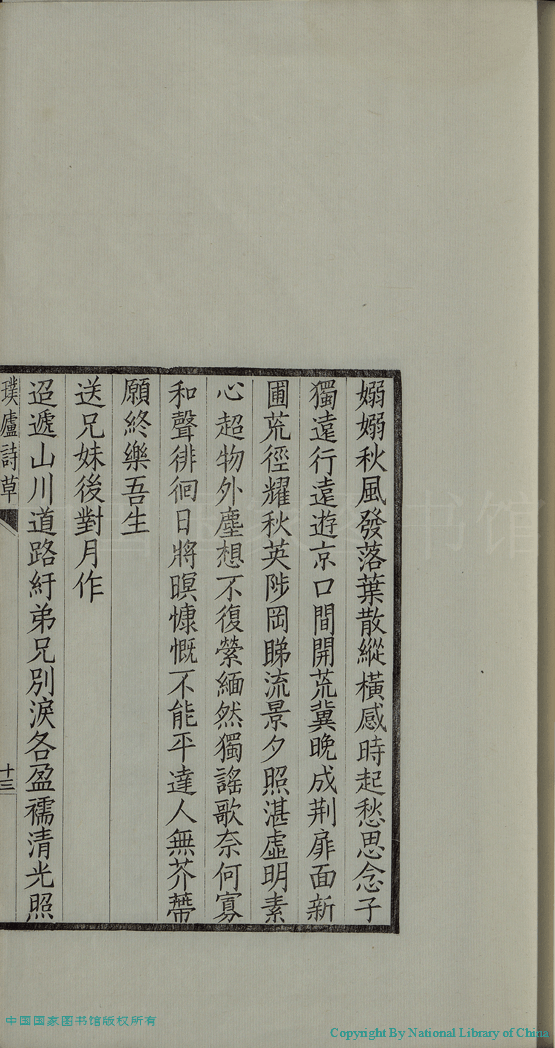 嫋嫋秋風發落葉散縱橫感時起愁思念子
獨遠行遠遊京口間開荒冀晚成荆扉面新
圃荒徑耀秋英陟岡睇流景夕照湛虛明素
心超物外塵想不復縈緬然獨謠歌奈何寡
和聲徘徊日將暝慷慨不能平達人無芥蔕
願終樂吾生
送兄妹後對月作
迢遞山川道路紆弟兄別淚各盈襦清光照
璞廬詩草
十三
中国国家图书馆版权所有
Copyright By National Library of China